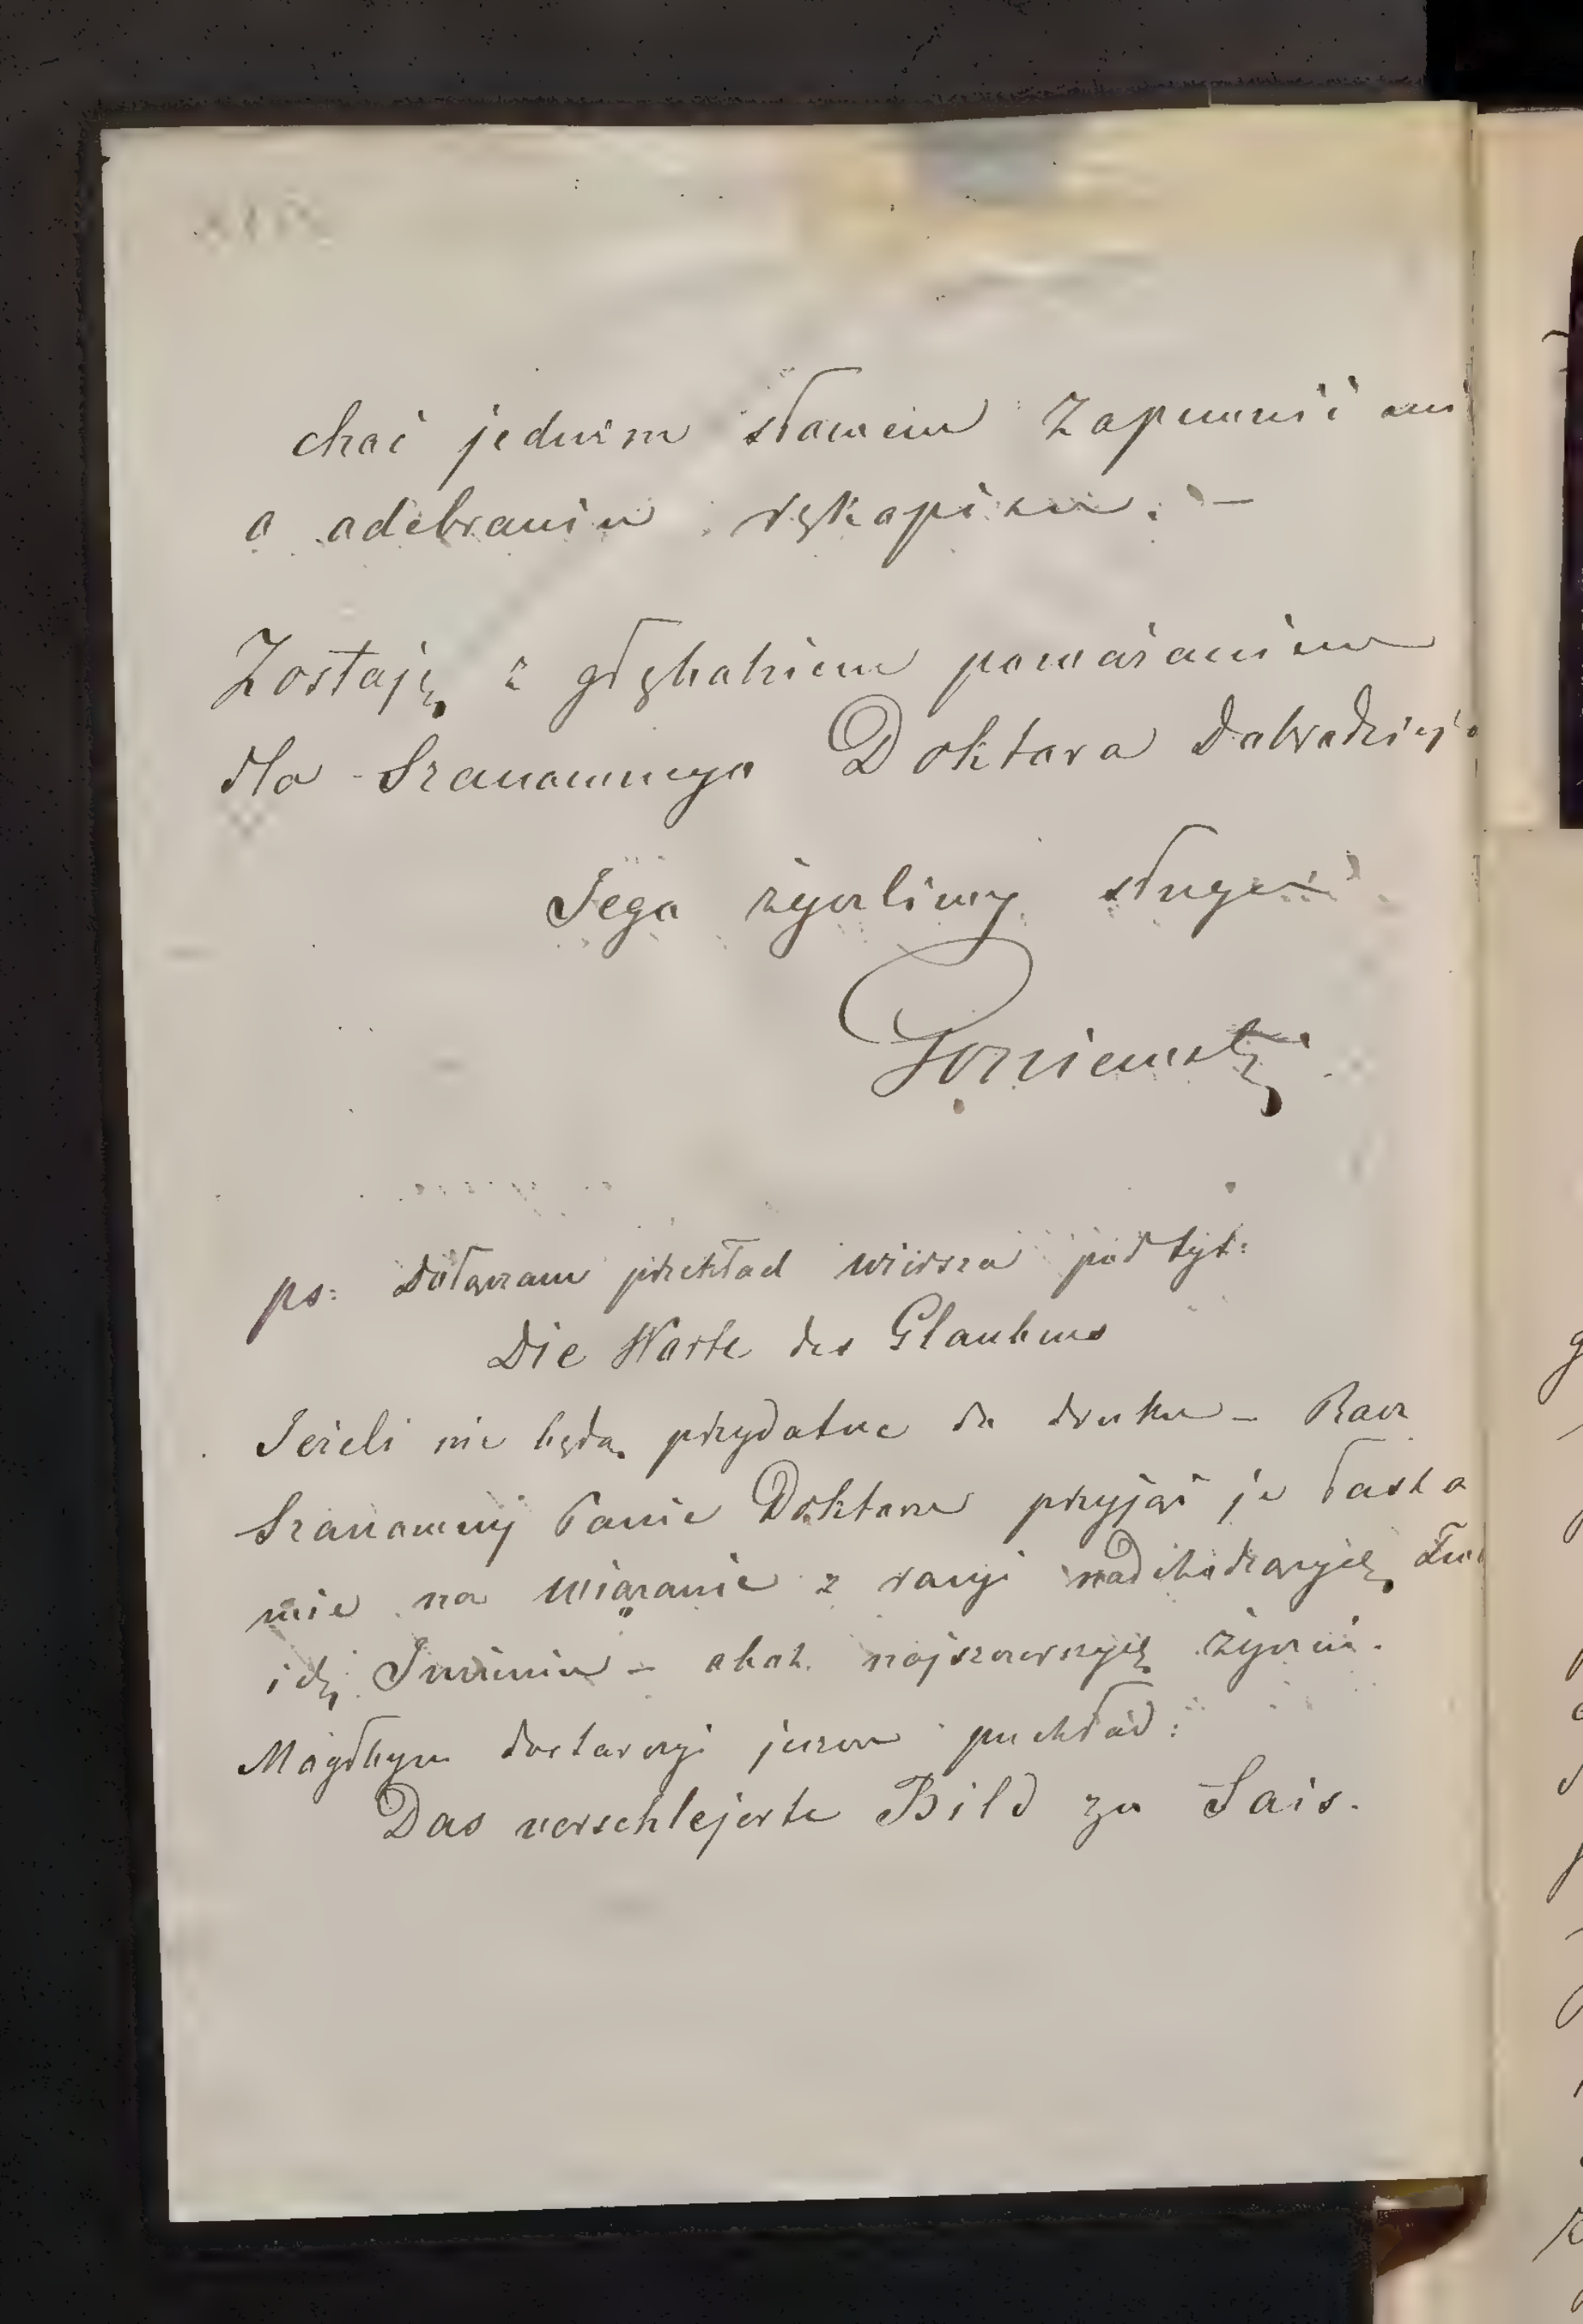 choć jednem słowem zapewnić mi
o odebraniu rękopisu. —
Zostaję z głębokiem poważaniem
dla Szanownego Doktora Dobrodzieja
Jego życzliwy sługa
ps: Dołączam przekład wiersza pod tyt:
Die Worte des Glaubens
Jeżeli nie będą przydatne do druku — Racz
Szanowny Panie Doktorze przyjąć je łaska
wie na wiązanie z racyi nadchodzących
Imienin — obok najszczerszych życzeń.
Mógłbym dostarczyć jeszcze przekład:
Das verschlejerte Bild zu Sais.